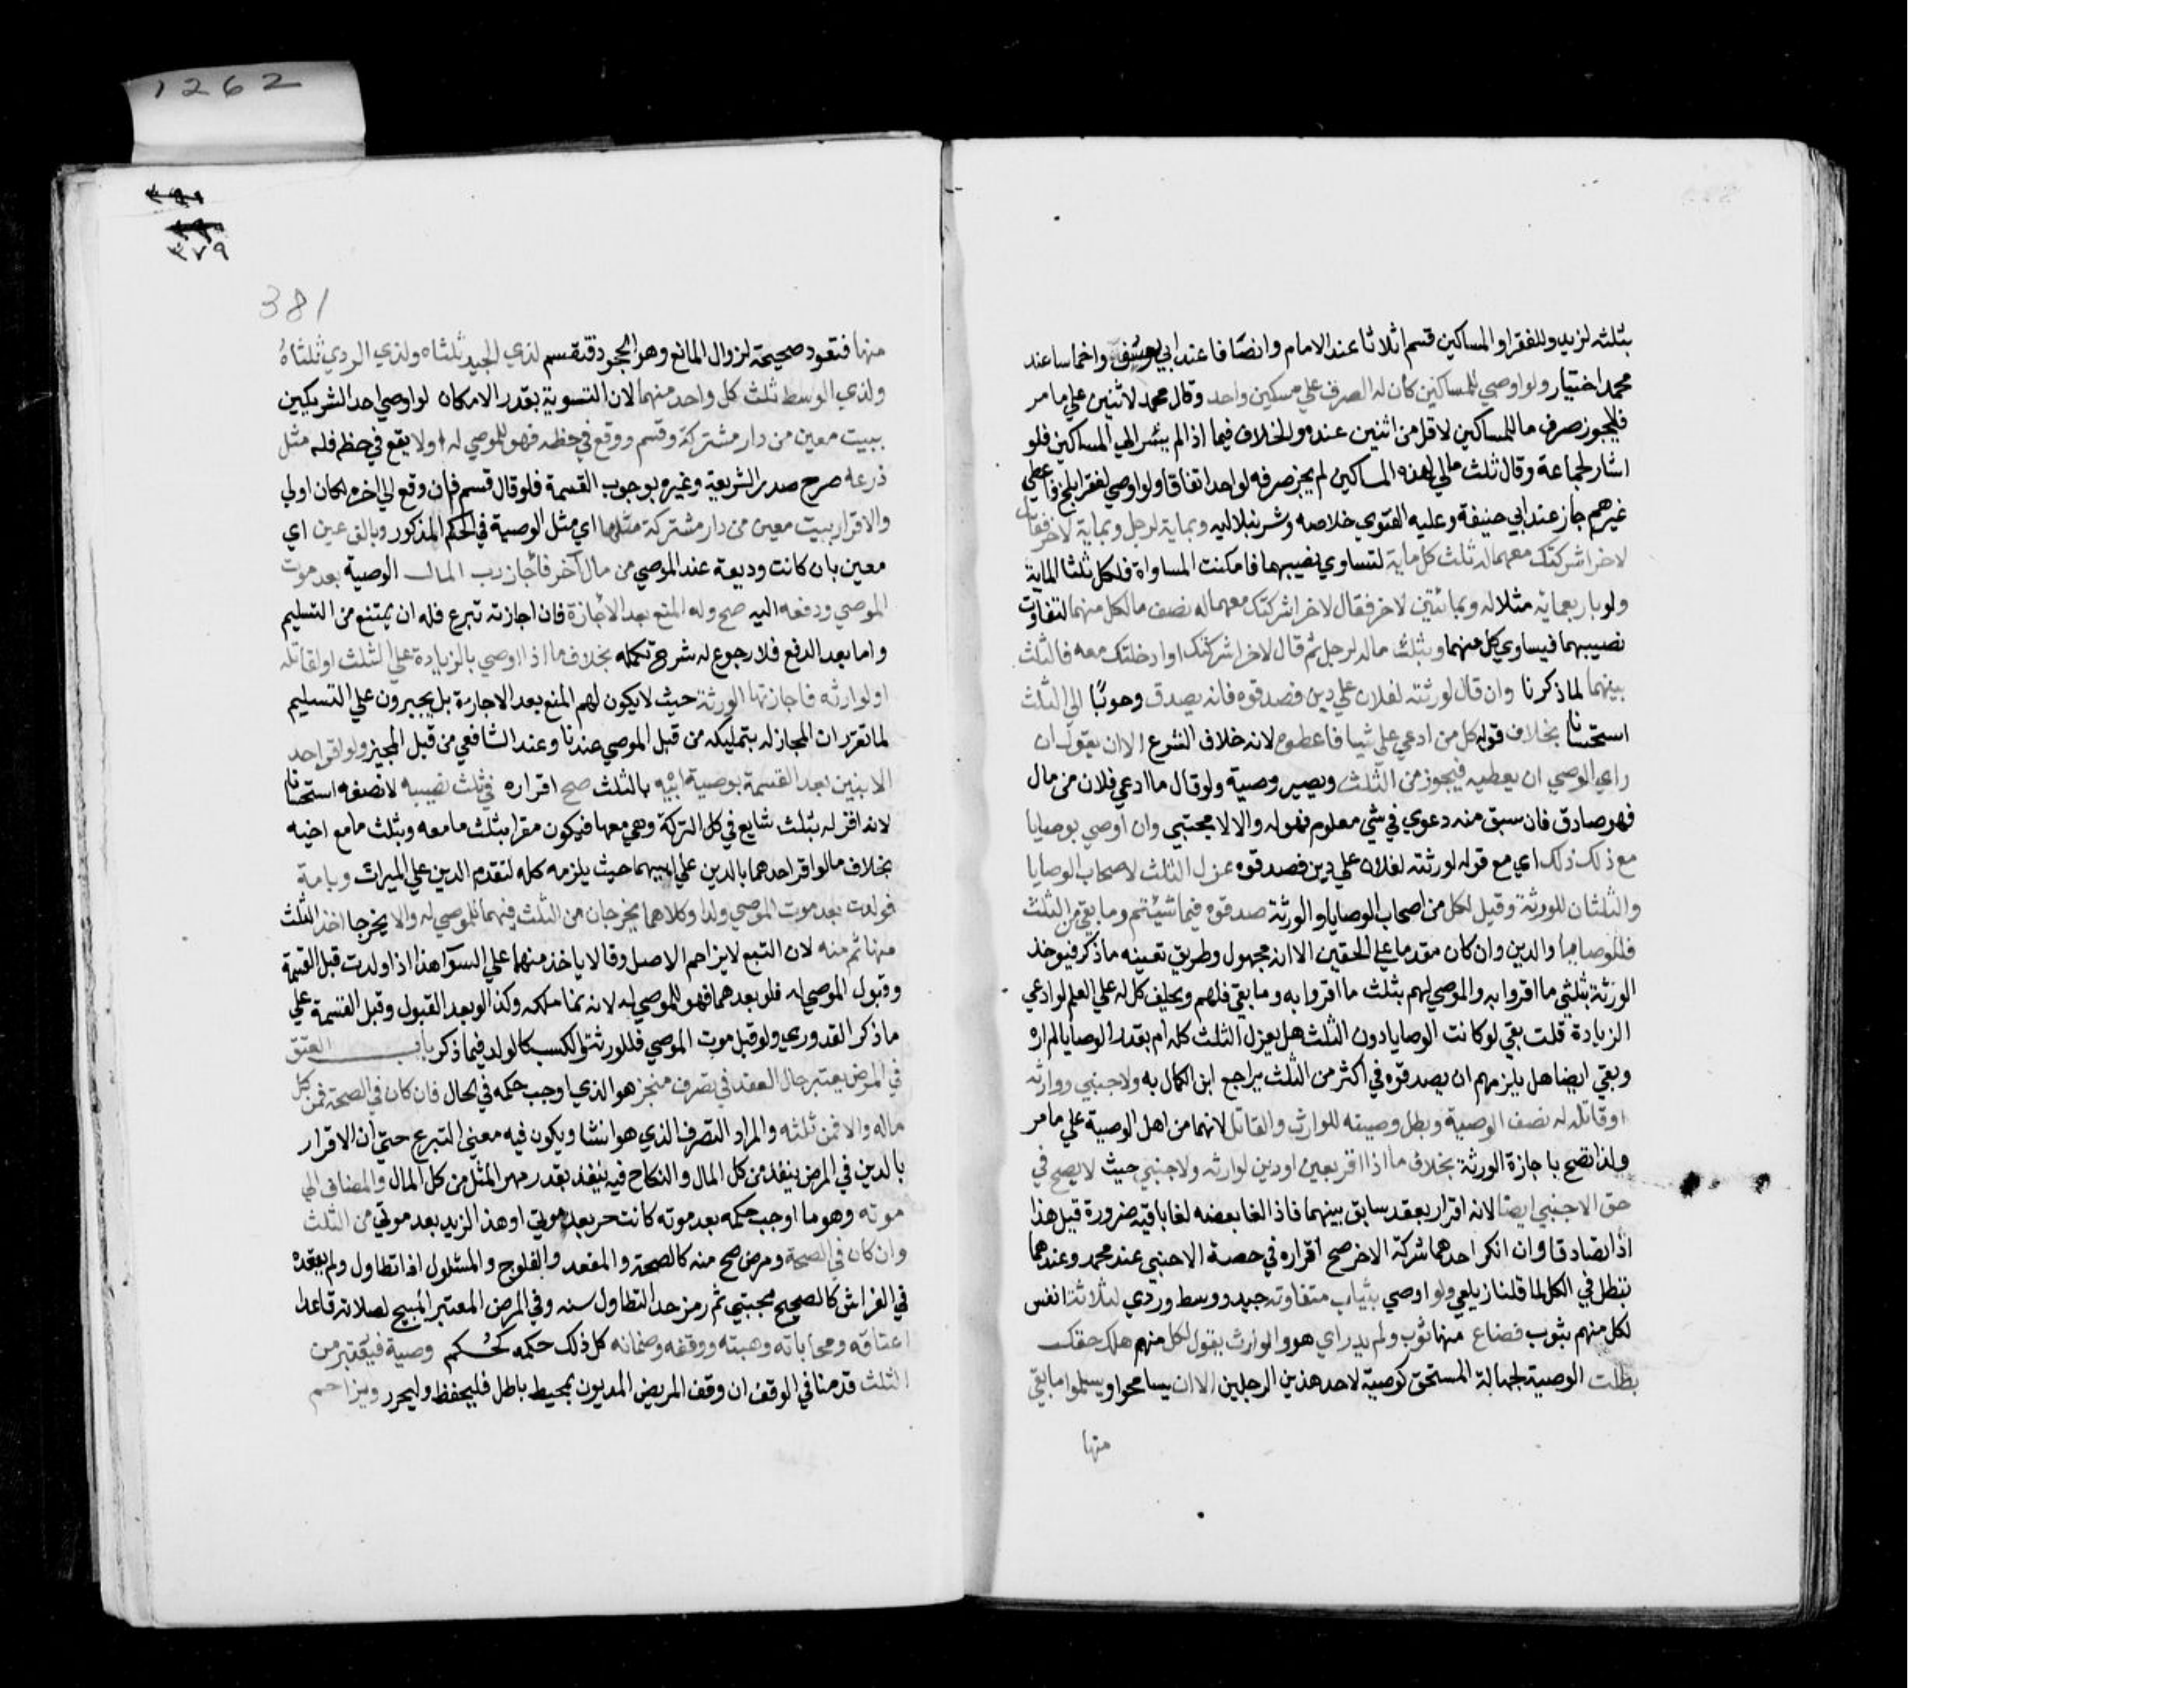 بثلثه لزيد وللفقرا والمساكين قسم اثلاثا عند الامام وانصافا عند ابي يوسف واخماسا عند
محمد اختيار ولو اوصي للمساكين كان له الصرف علي مسكين واحد وقال محمد لاثنين علي ما مر
فلا يجوز صرف ما للمساكين لاقل من اثنين عنده والخلاف فيما اذا لم يشر الي المساكين فلو
اشار لجماعة وقال ثلث مالي لهذه المساكين لم يجز صرفه لواحد اتفاقا ولو اوصي لفقرا بلخ فاعطي
غيرهم جاز عند ابي حنيفة وعليه الفتوي خلاصه وشرنبلاليه وبماية لرجل وبماية لاخر فقال
لاخر اشركتك معهما له ثلث كل ماية لتساوي نصيبهما فامكنت المساواة فلكل ثلثا الماية
ولو باربعماية مثلا له وبمائتين لاخر فقال لاخر اشركتك معهما له نصف ما لكل منهما لتفاوت
نصيبهما فيساوي كل منهما وبثلث ماله لرجل ثم قال لاخر اشركتك او ادخلتك معه فالثلث
بينهما لما ذكرنا وان قال لورثته لفلان علي دين فصدقوه فانه يصدق وجوبا الي الثلث
استحسانا بخلاف قوله كل من ادعي علي شيا فاعطوه لانه خلاف الشرع الا ان يقول ان
راي الوصي ان يعطيه فيجوز من الثلث ويصير وصية ولو قال ما ادعي فلان من مال
فهو صادق فان سبق منه دعوي في شي معلوم فهوله والا لا مجتبي وان اوصي بوصايا
مع ذلك ذلك اي مع قوله لورثته لفلان علي دين فصدقوه عزل الثلث لاصحاب الوصايا
والثلثان للورثة وقيل لكل من اصحاب الوصايا والورثة صدقوه فيما شئتم وما بقي من الثلث
فللوصايا والدين وان كان مقدما علي الحقين الا انه مجهول وطريق تعيينه ما ذكر فيوخذ
الورثة بثلثي ما اقروا به والموصي لهم بثلث ما اقروا به وما بقي فلهم ويحلف كل له علي العلم لو ادعي
الزيادة قلت بقي لو كانت الوصايا دون الثلث هل يعزل الثلث كله ام بقدر الوصايا لم اره
وبقي ايضا هل يلزمهم ان يصدقوه في اكثر من الثلث يراجع ابن الكمال به ولاجنبي ووارثه
او قاتله له نصف الوصية وبطل وصيته للوارث والقاتل لانهما من اهل الوصية علي ما مر
ولذا تصح باجازة الورثة بخلاف ما اذا اقر بعين او دين لوارثه ولاجنبي حيث لا يصح في
حق الاجنبي ايضا لانه اقرار بعقد سابق بينهما فاذا لغا بعضه لغا باقيه ضرورة قيل هذا
اذا تصادقا وان انكر احدهما شركة الاخر صح اقراره في حصة الاجنبي عند محمد وعندهما
تبطل في الكل لما قلنا زيلعي ولو اوصي بثياب متفاوته جيد ووسط وردي لثلاثة انفس
لكل منهم بثوب فضاع منها ثوب ولم يدر اي هو والوارث يقول لكل منهم هلك حقك
بطلت الوصية لجهالة المستحق كوصية لاحد هذين الرجلين الا ان يسامحوا ويسلموا ما بقي
منها
1262
٣٧٩
381
منها فتعود صحيحة لزوال المانع وهو الجحود فتقسم لذي الجيد ثلثاه ولذي الردي ثلثاه
ولذي الوسط ثلث كل واحد منهما لان التسوية بقدر الامكان لو اوصي احد الشريكين
ببيت معين من دار مشتركة وقسم ووقع في حظه فهو للموصي له اولا يقع في حظه فله مثل
ذرعه صرح صدر الشريعة وغيره بوجوب القسمة فلو قال قسم فان وقع الي اخره لكان اولي
والاقرار ببيت معين من دار مشتركة مثلها اي مثل الوصية في الحكم المذكور وبالف عين اي
معين بان كانت وديعة عند الموصي من مال آخر فاجاز رب المال الوصية بعد موت
الموصي ودفعه اليه صح وله المنع بعد الاجازة فان اجازته تبرع فله ان يمتنع من التسليم
واما بعد الدفع فلا رجوع له شرح تكمله بخلاف ما اذا اوصي بالزيادة علي الثلث او لقاتله
او لوارثه فاجازتها الورثة حيث لا يكون لهم المنع بعد الاجازة بل يجبرون علي التسليم
لما تقرر ان المجاز له يتملكه من قبل الموصي عندنا وعند الشافعي من قبل المجيز ولو اقر احد
الابنين بعد القسمة بوصية ابيه بالثلث صح اقراره في ثلث نصيبه لا نصفه استحسانا
لانه اقر له بثلث شايع في كل التركة وهي معهما فيكون مقرا بثلث ما معه وبثلث ما مع اخيه
بخلاف ما لو اقر احدهما بالدين علي ابيهما حيث يلزمه كله لتقدم الدين علي الميراث وبامة
فولدت بعد موت الموصي ولدا وكلاهما يخرجان من الثلث فهما للموصي له والا يخرجا اخذ الثلث
منها ثم منه لان التبع لا يزاحم الاصل وقالا ياخذ منهما علي السوآ هذا اذا ولدت قبل القسمة
وقبول الموصي له فلو بعدهما فهو للموصي له لانه نما ملكه وكذا لو بعد القبول وقبل القسمة علي
ما ذكر القدوري ولو قبل موت الموصي فللورثة والكسب كالولد فيما ذكر باب العتق
في المرض يعتبر حال العقد في تصرف منجز هو الذي اوجب حكمه في الحال فان كان في الصحة فمن كل
ماله والا فمن ثلثه والمراد التصرف الذي هو انشا ويكون فيه معني التبرع حتي ان الاقرار
بالدين في المرض ينفذ من كل المال والنكاح فيه ينفذ بقدر مهر المثل من كل المال والمضاف الي
موته وهو ما اوجب حكمه بعد موته كانت حر بعد موتي او هذا لزيد بعد موتي من الثلث
وان كان في الصحة ومرض صح منه كالصحة والمقعد والفلوج والمسلول اذا تطاول ولم يقعده
في الفراش كالصحيح مجتبي ثم رمز حد التطاول سنه وفي المرض المعتبر المبيح لصلاته قاعدا
اعتاقه ومحاباته وهبته ووقفه وضمانه كل ذلك حكمه كحكم وصية فيعتبر من
الثلث قدمنا في الوقف ان وقف المريض المديون بمحيط باطل فليحفظ وليحرر ويزاحم